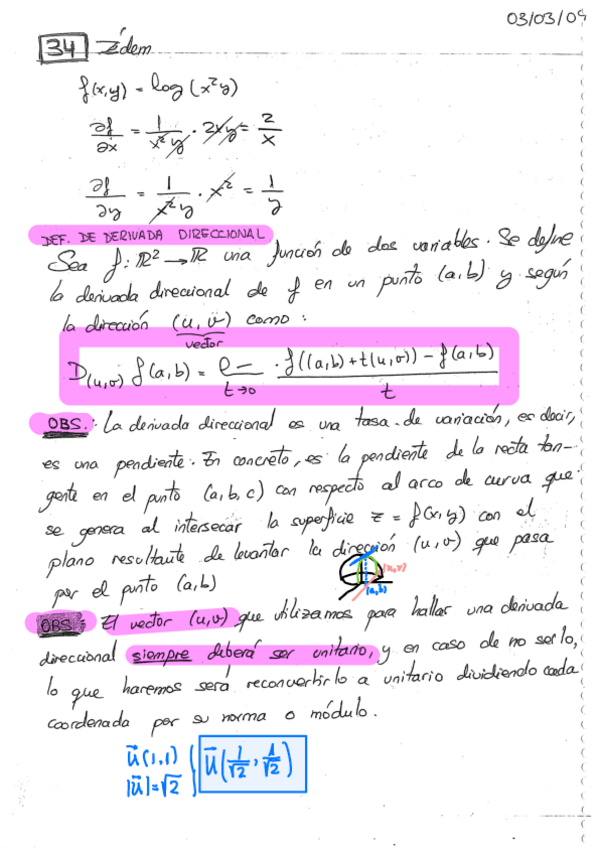 03/03/09
34 Ídem
f(x,y) = log (x²y)
∂f/∂x = 1/x²y · 2xy = 2/x
∂f/∂y = 1/x²y · x² = 1/y
DEF. DE DERIVADA DIRECCIONAL
Sea f: ℝ² → ℝ una función de dos variables. Se define
la derivada direccional de f en un punto (a,b) y según
la dirección (u,v) como:
vector
D(u,v) f(a,b) = lim t→0 f((a,b)+t(u,v)) - f(a,b) / t
OBS.: La derivada direccional es una tasa de variación, es decir,
es una pendiente. En concreto, es la pendiente de la recta tan-
gente en el punto (a,b,c) con respecto al arco de curva que
se genera al intersecar la superficie z = f(x,y) con el
plano resultante de levantar la dirección (u,v) que pasa
por el punto (a,b)
(u,v)
(a,b)
OBS: El vector (u,v) que utilizamos para hallar una derivada
direccional siempre deberá ser unitario, y en caso de no serlo,
lo que haremos será reconvertirlo a unitario dividiendo cada
coordenada por su norma o módulo.
u⃗(1,1)
|u⃗|=√2 } u⃗(1/√2, 1/√2)